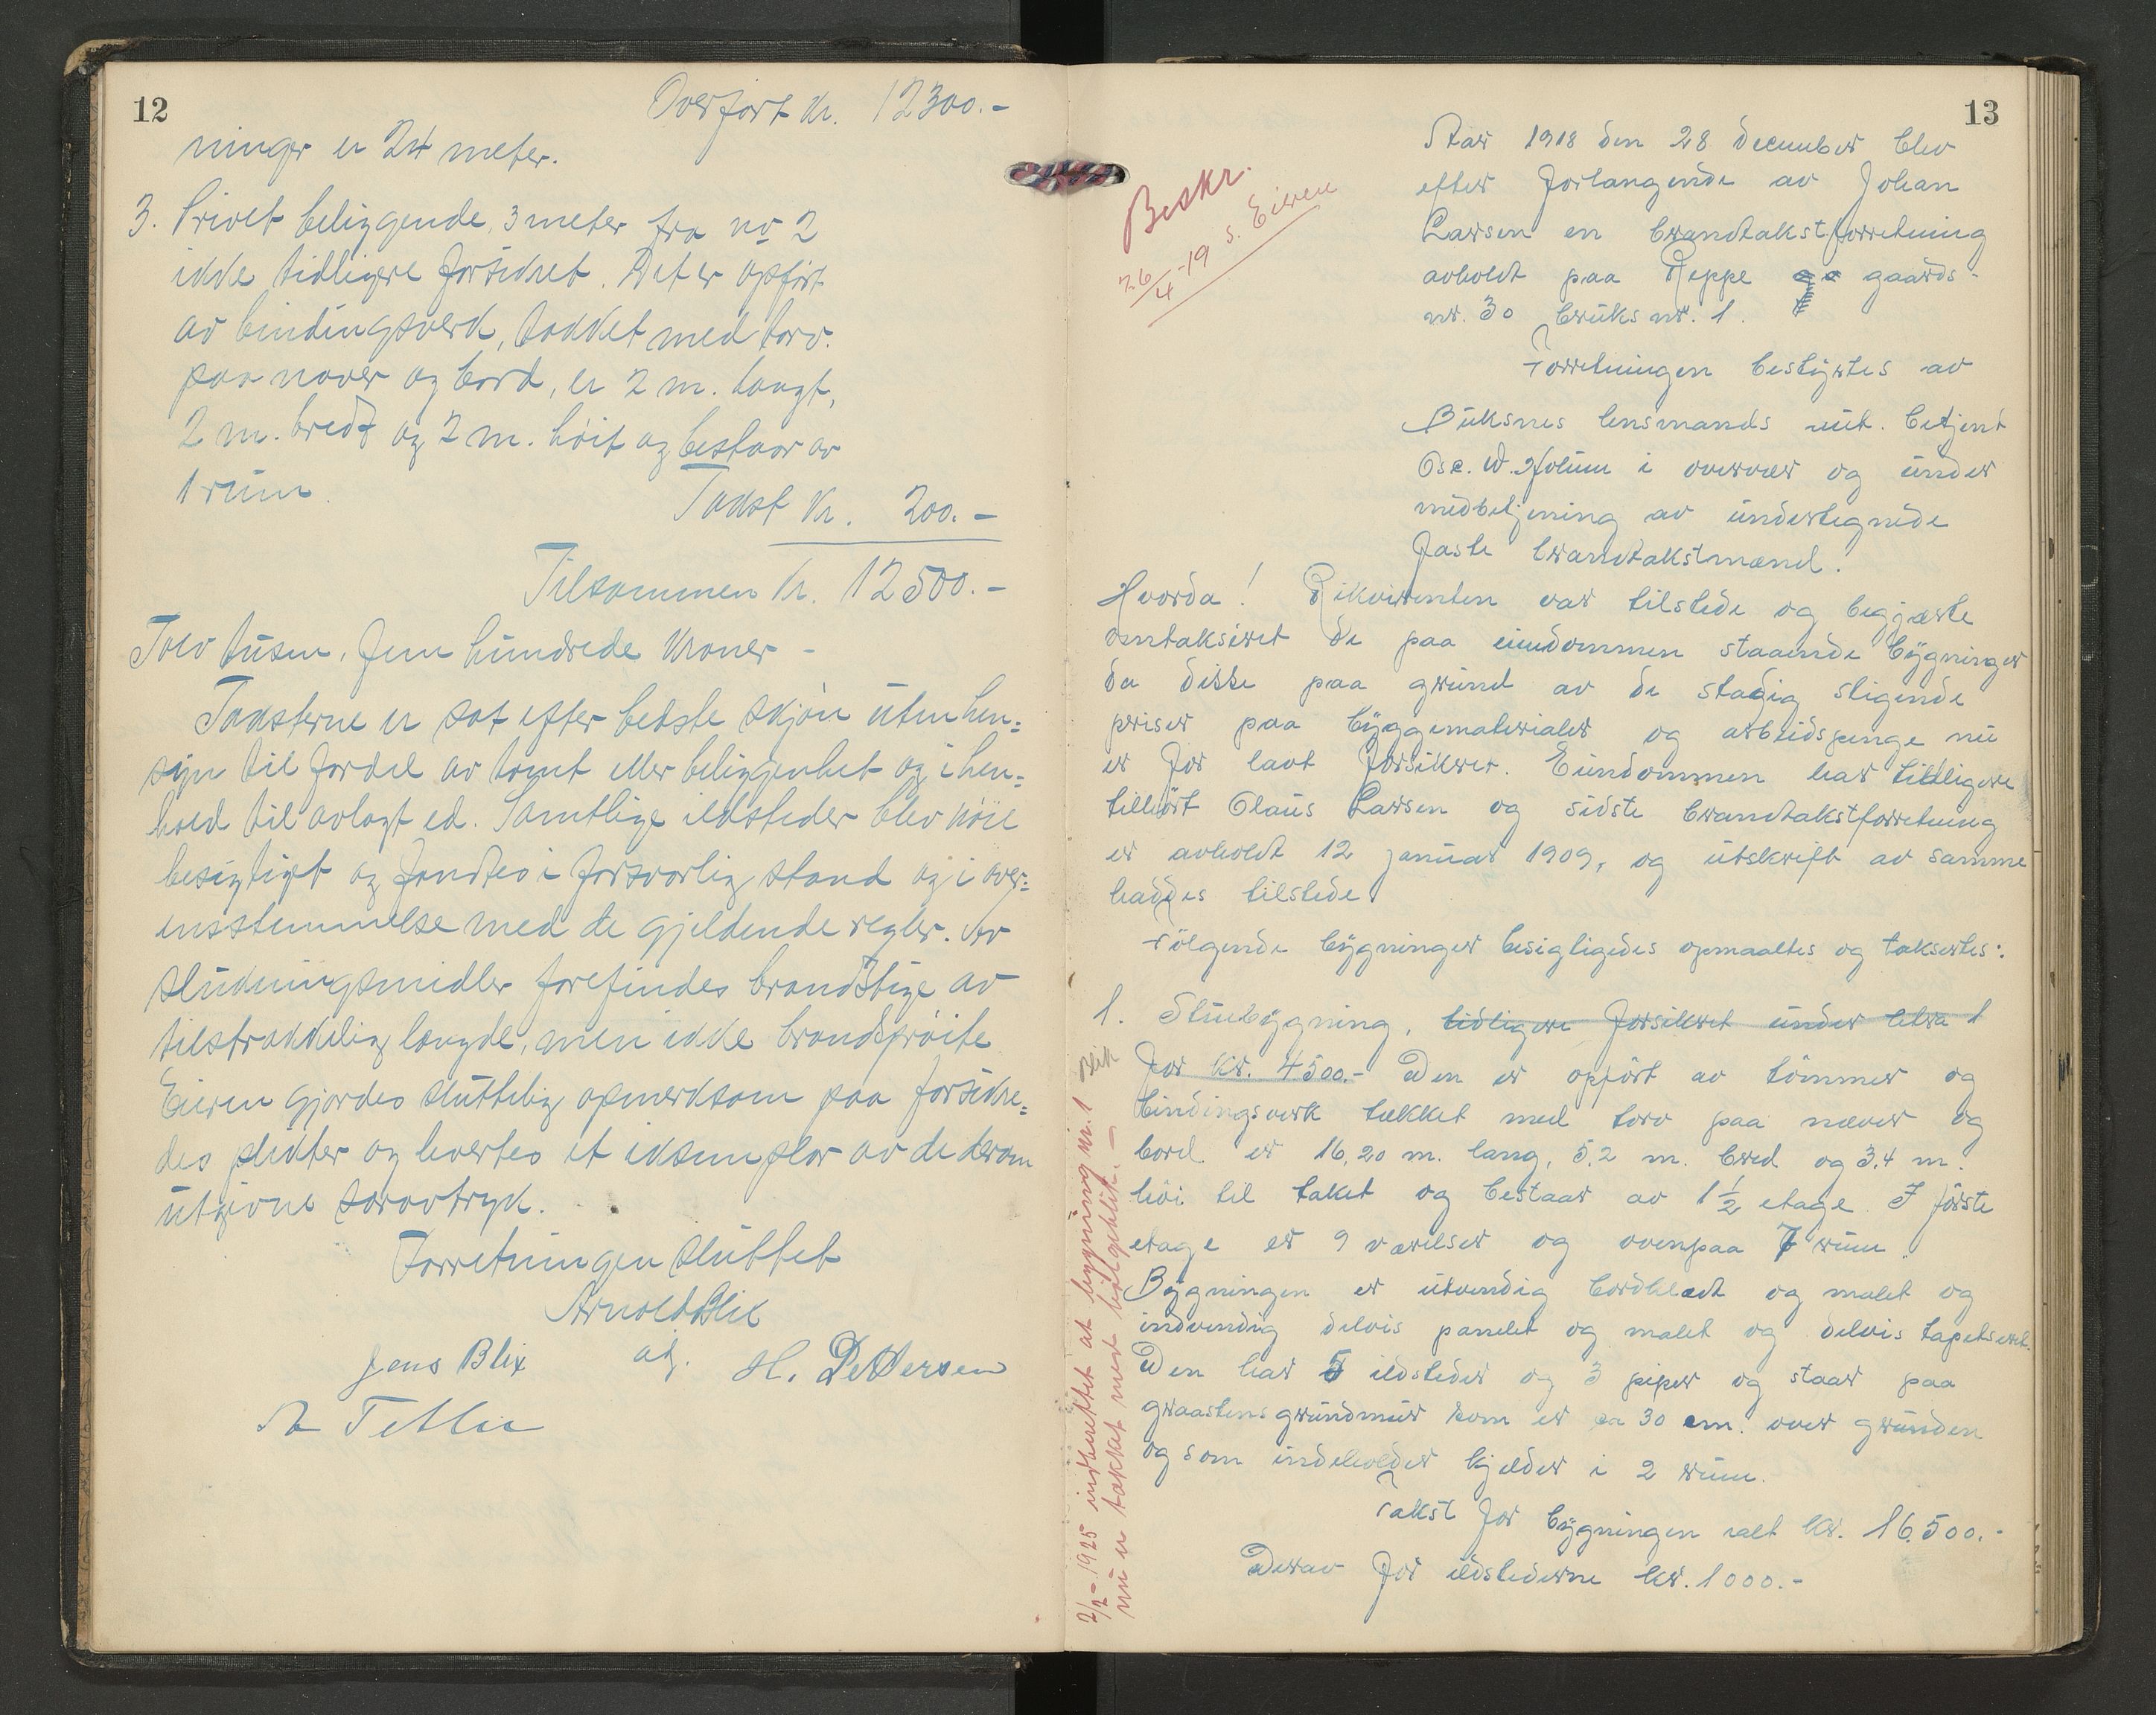 12
Overført kr. 12300.-
ninger er 24 meter.
3. Privet beliggende 3 meter fra no 2
ikke tidligere forsikret. Det er opført
av bindingsverk, tækket med torv.
paa næver og bord, er 2 m. langt,
2 m. bredt og 2 m. høit og bestaar av
1 rum.
Takst kr. 200.-
Tilsammen kr. 12500.-
Tolv tusen, fem hundrede kroner -
Taksterne er sat efter bedste skjøn uten hen=
syn til fordel av tomt eller beliggenhet og i hen=
hold til avlagt ed. Samtlige ildsteder blev nöie
besigtiget og fandtes i forsvarlig stand og i over=
ensstemmelse med de gjeldende regler. Av
slukningsmidler forefindes brandstige av
tilstrækkelig længde, men ikke brandsprøite
Eieren gjordes sluttelig opmerksom paa forsikre=
des plikter og levertes et eksemplar av de derom
utgivne særavtryk.
Forretningen sluttet
Arnold Blix
Jens Blix
ad.
H. Pettersen
13
Beskr.
26/4-19 s. Eieren
Aar 1918 den 28 december blev
efter forlangende av Johan
Larsen en brandtakstforretning
avholdt paa Reppe gaards-
nr. 30 bruks nr. 1.
Forretningen bestyrtes av
Buksnes lensmands aut. betjent
Osc. W. Holum i overvær og under
medbetjening av undertegnede
faste brandtakstmænd.
Hvorda! Rikvirenten var tilstede og begjærte
omtakseret de paa eiendommen staaende bygninger
da disse paa grund av de stadig stigende
priser paa byggematerialer og arbeidspenge nu
er for lavt forsikrer. Eiendommen har tidligere
tilhørt Olaus Larsen og sidste brandtakstforretning
er avholdt 12 januar 1909, og utskrift av samme
haddes tilstede.
Følgende bygninger besigtigedes opmaaltes og taksertes:
1. Stuebygning, tidligere forsikret under litra 1
for kr. 4500.- Den er opført av tömmer og
bindingsverk tækket med torv paa næver og
bord er 16,20 m. lang, 5,2 m. bred og 3,4 m.
höi til taket og bestaar av 1 1/2 etage. I förste
etage er 9 værelser og ovenpaa 7 rum.
Bygningen er utvendig bordklædt og malet og
indvendig delvis panelet og malet og delvis tapetseret.
Den har 5 ildsteder og 3 piper og staar paa
graastens grundmur som er ca 30 cm. over grunden
og som indeholder kjælder i 2 rum.
Takst for bygningen ialt kr. 16.500.-
Derav for ildstederne kr. 1000.-
2/2-1925 indberettet at bygning nr. 1
nu er tækket med bölgeblik.-
Blix